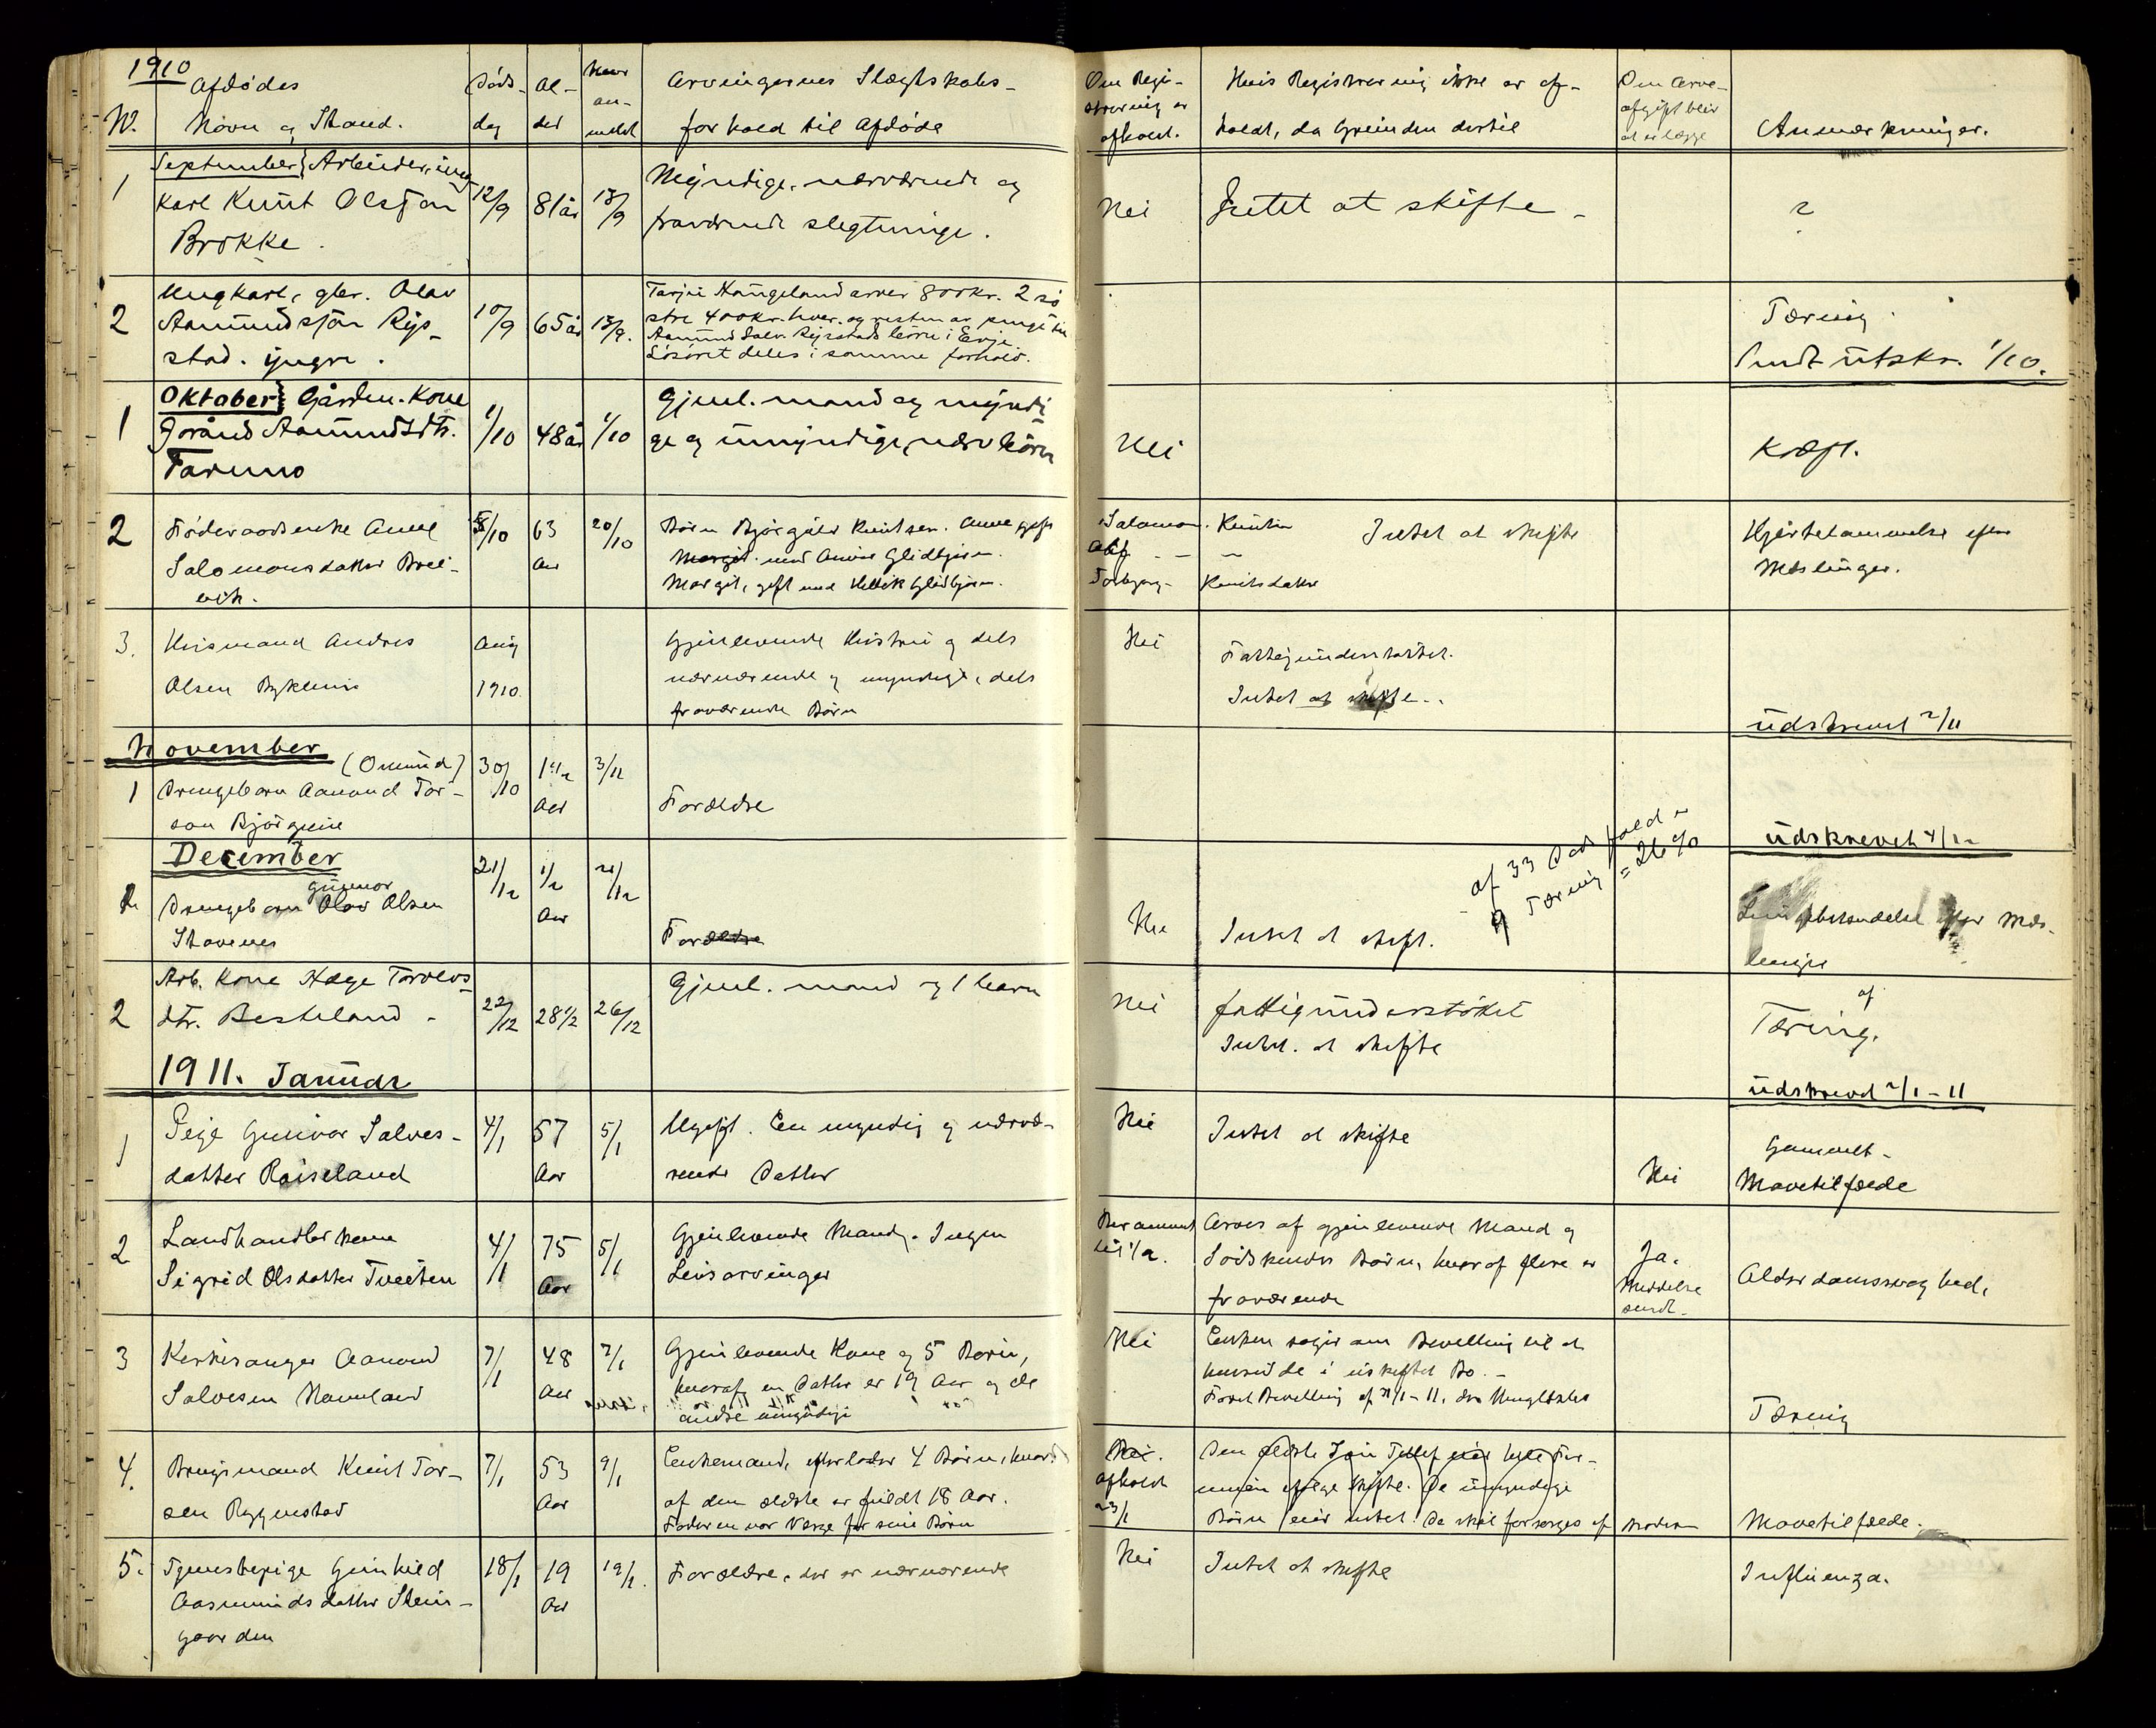 1910
Afdødes
Døds-
Al-
Naar
an-
Arvingernes Slægtskabs-
Om Regi-
strering er
Hvis Registrering ikke er af-
Om Arve-
afgift blir
No.
Navn og Stand.
dag
der
meldt
forhold til Afdøde
afholdt.
holdt, da Grunden dertil
at erlægge
Anmærkninger.
September} Arbeider, ung
1
karl Knut Olsson
Brokke.
12/9
81 år
13/9
Myndige, nærværende og
fraværende slegtninge.
Nei
Intet at skifte -
?
2
Ungkarl, gbr. Olav
Aamundssøn Rys-
stad. yngre.
10/9
65 år
13/9.
Tarjei Haugeland arver 800 kr. 2 sø
stre 400 kr. hver og resten av penge til
Aamund Salv. Rysstads børn i Evje.
Løsøret deles i samme forhold.
Tæring.
Sendt utskr. 1/10.
Oktober} Gården. Kone
1
Jorånd Aamundsdtr.
Faruno
1/10
48 år
1/10
Gjenl. mand og myndi
ge og umyndige, nærv børn
Nei
Kræft.
2
Føderaadsenke Anne
Salomonsdatter Brei-
vik.
8/10
63
Aar
20/10
Børn Bjørgulv Knutsen. Anne gift
Margit med Anvin Glidbjørn.
Margit, gift med Hellik Glidbjørn.
Salomon. Knutsen
Olif - -
Torbjørg - Knutsdatter
Intet at skifte
Hjertelammelse efter
Meslinger.
3.
Husmand Andres
Olsen Byklum
Aug
1910.
Gjenlevende Hustru og dels
nærværende og myndige, dels
fraværende Børn
Nei
Fattigunderstøttet.
Intet at skifte..
udskrevet 2/11
November
(Omund)
1
Drengebarn Aanond Tor-
son Bjørgum
30/10
1 1/2
Aar
3/11
Forældre
udskrevet 4/12
December
1
Gunnar
Drengebarn Olav Olsen
Stavenes
21/12
1/2
Aar
21/12
Forældre
Nei
Intet at skift.
af 33 Dødsfald er
9 Tæring = 26 %
Lungebetændelse efter Mes-
linger
2
Arb. Kone Hæge Torleivs
dtr. Besteland -
22/12
28 1/2
26/12
Gjenl. mand og 1 barn
Nei
fattigunderstøttet
Intet. at skifte
af
Tæring.
1911. Januar
udskrevet 2/1 - 11
1
Pige Gunvor Salves-
datter Roiseland
4/1
57
Aar
5/1
Ugift. En myndig og nærvæ-
rende Datter
Nei
Intet at skifte
Nei
Gammelt -
Mavetilfælde
2
Landhandlerkone
Sigrid Olsdatter Tveiten
4/1
75
Aar
5/1
Gjenlevende Mand. Ingen
Livsarvinger
Berammet
til 1/2.
Arves af gjenlevende Mand og
Sødskendes Børn, hvoraf flere er
fraværende
Ja.
Meddelse
sendt -
Alderdomssvaghed.
3
Kirkesanger Aanond
Salvesen Homeland
7/1
48
Aar
7/1
Gjenlevende Kone og 5 Børn,
hvoraf en Datter er 19 Aar og de
andre umyndige
Nei
Enken søger om Bevilling til at
hensidde i uskiftet Bo. -
Faaet Bevilling af 21/1 - 11.
Tæring
4.
Brugsmand Knut Tor-
sen Rygnestad
7/1
53
Aar
9/1
Enkemand, efterlader 4 Børn, hvor
af den ældste er fuldt 18 Aar.
Faderen var Verge for sine Børn
Nei.
afholdt
23/1
Den ældste Søn
De umyndige
Børn eier intet. De skal forsørges af
Mavetilfælde.
5.
Tjenestepige Gunhild
Aasmundsdatter Stein-
gaarden
18/1
19
Aar
19/1.
Forældre, der er nærværende
Nei
Intet at skifte
Influenza.